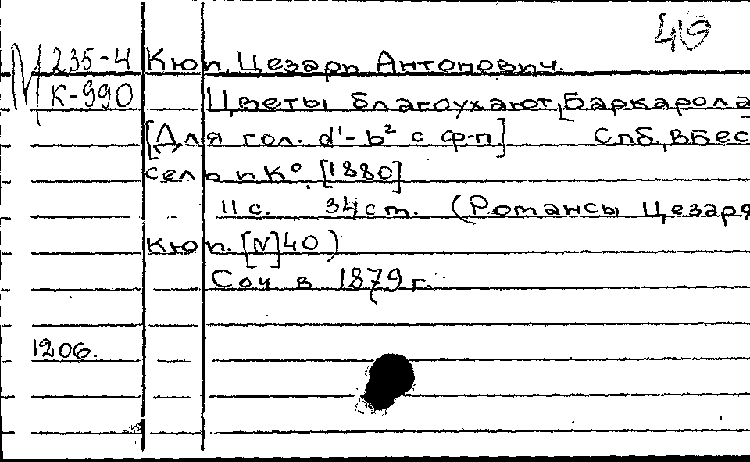 49
М 235-4 Кюи, Цезарь Антонович.
К-990 Цветы благоухают, [Баркарола
[Для гол. d¹-b² с ф-п] Спб., В. Бес
сель и К°, [1880]
11 с. 34 ст. (Романсы Цезаря
Кюи. [N] 40)
Соч в 1879 г.
1206.